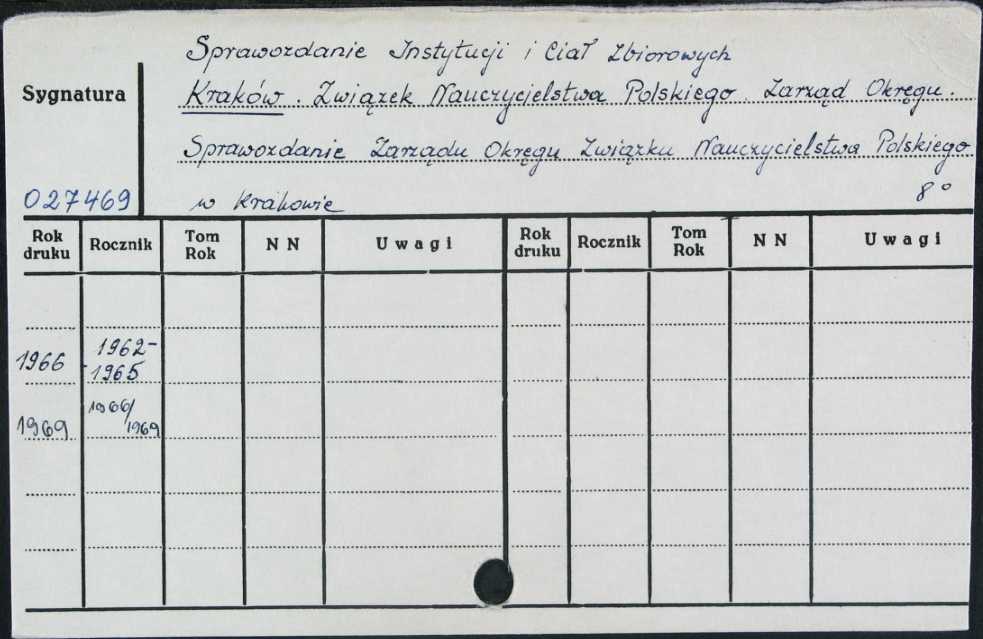 Sprawozdanie Instytucji i Ciał Zbiorowych
Sygnatura
Kraków. Związek Nauczycielstwa Polskiego. Zarząd Okręgu.
Sprawozdanie Zarządu Okręgu Związku Nauczycielstwa Polskiego
027469
w Krakowie
8°
Rok druku Rocznik Tom Rok N N Uwagi Rok druku Rocznik Tom Rok N N Uwagi
1966 1962-
-1965
1969 1966/
1969